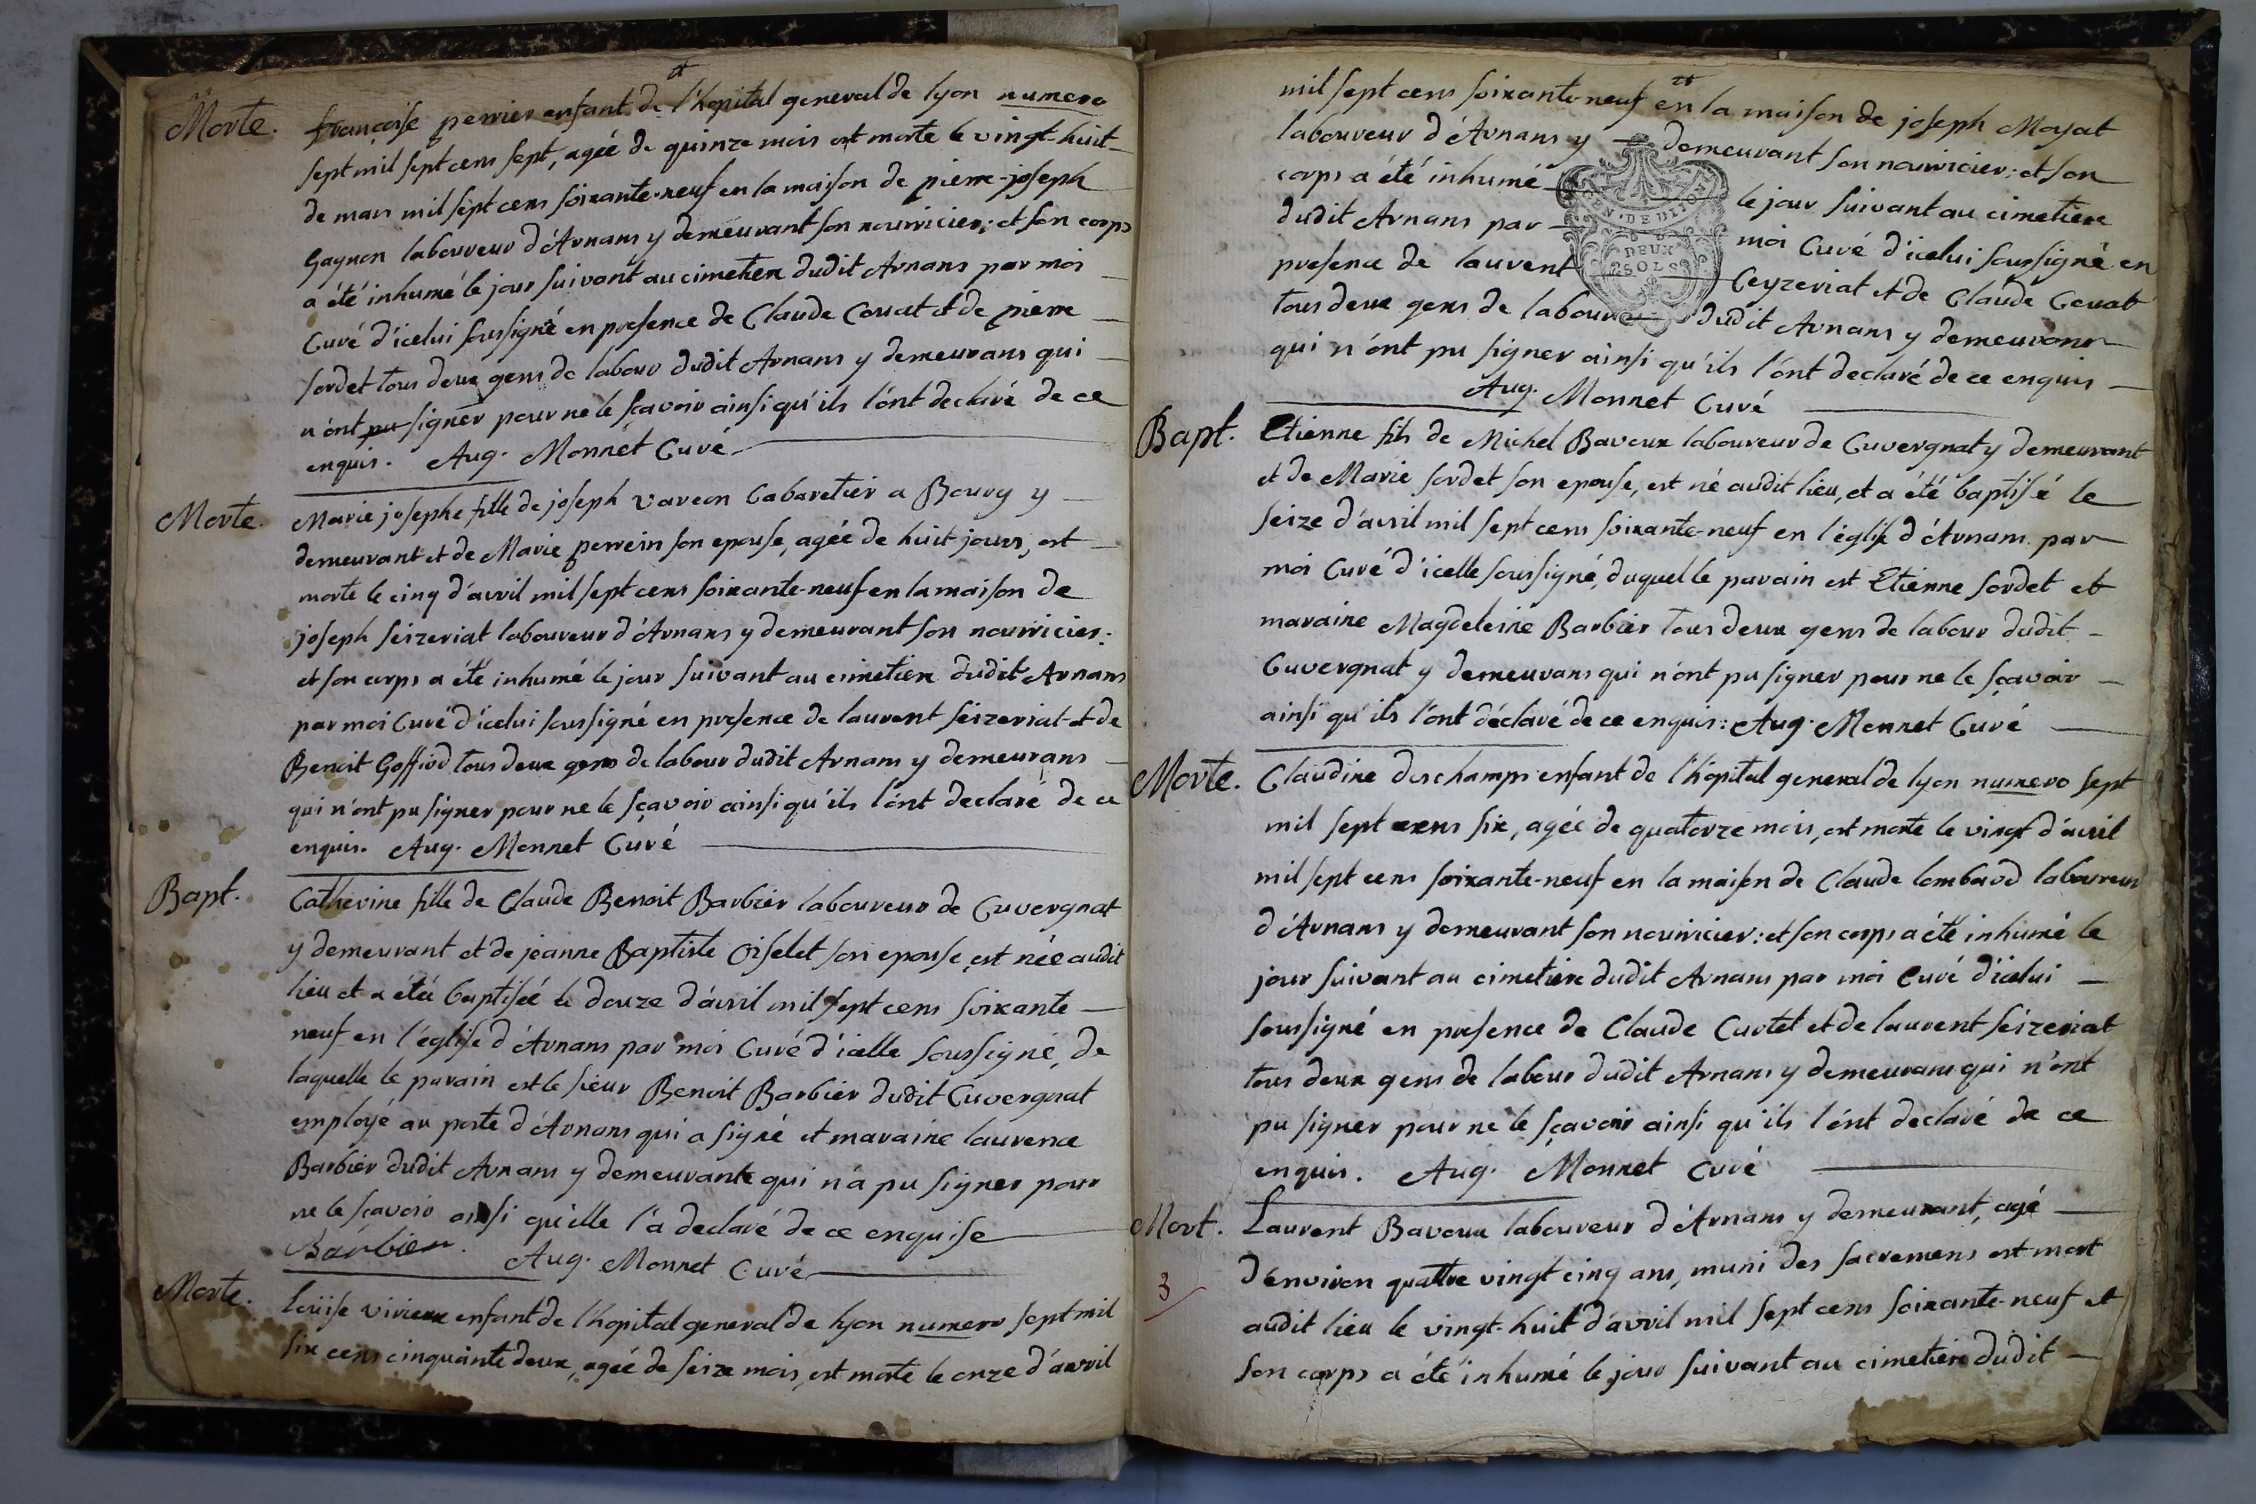 Morte.
françoise perrier enfant de l'hopital general de lyon numero
sept mil sept cens sept, agée de quinze mois est morte le vingt-huit
de mars mil sept cens soixante-neuf en la maison de pierre-joseph
Gagnon laboureur d'Arnans y demeurant son nourricier: et son corps
a été inhumé le jour suivant au cimetiere dudit Arnans par moi
Curé d'icelui soussigné en presence de Claude Couat et de pierre
sordet tous deux gens de labour dudit Arnans y demeurans qui
n'ont pu signer pour ne le sçavoir ainsi qu'ils l'ont declaré de ce
enquis. Aug. Monnet Curé
Morte.
Marie josephe fille de joseph vareon Cabaretier a Bourg y
demeurant et de Marie perrein son epouse, agée de huit jours, est
morte le cinq d'avril mil sept cens soixante-neuf en la maison de
joseph seizeriat laboureur d'Arnans y demeurant son nourricier:
et son corps a été inhumé le jour suivant au cimetiere dudit Arnans
par moi Curé d'icelui soussigné en presence de laurent seizeriat et de
Benoit Goffiod tous deux gens de labour dudit Arnans y demeurans
qui n'ont pu signer pour ne le sçavoir ainsi qu'ils l'ont declaré de ce
enquis. Aug. Monnet Curé
Bapt.
Catherine fille de Claude Benoit Barbier laboureur de Cuvergnat
y demeurant et de jeanne Baptiste Oiselet son epouse est née audit
lieu et a été baptisée le douze d'avril mil sept cens soixante
neuf en l'église d'Arnans par moi Curé d'icelle soussigné, de
laquelle le parain est le sieur Benoit Barbier dudit Cuvergnat
employé au poste d'Arnans qui a signé et maraine laurence
Barbier dudit Arnans y demeurante qui n'a pu signer pour
ne le sçavoir ainsi qu'elle l'a declaré de ce enquise
Barbier. Aug. Monnet Curé
Morte.
Loüise vivieux enfant de l'hopital general de lyon numero sept mil
six cens cinquante deux, agée de seize mois, est morte le onze d'avril
mil sept cens soixante-neuf en la maison de joseph Moyat
laboureur d'Arnans y demeurant son nourricier: et son
corps a été inhumé le jour suivant au cimetiere
dudit Arnans par moi Curé d'icelui soussigné en
presence de laurent Ceyzeriat et de Claude Couat
tous deux gens de labour dudit Arnans y demeurans
qui n'ont pu signer ainsi qu'ils l'ont declaré de ce enquis
Aug. Monnet Curé
GEN. DE DIJON
DEUX
SOLS
Bapt.
Etienne fils de Michel Bavoux laboureur de Cuvergnat y demeurant
et de Marie sordet son epouse, est né audit lieu, et a été baptisé le
seize d'avril mil sept cens soixante-neuf en l'église d'Arnans par
moi Curé d'icelle soussigné, duquel le parain est Etienne sordet et
maraine Magdeleine Barbier tous deux gens de labour dudit
Cuvergnat y demeurans qui n'ont pu signer pour ne le sçavoir
ainsi qu'ils l'ont déclaré de ce enquis: Aug. Monnet Curé
Morte.
Claudine deschamps enfant de l'hôpital general de lyon numero sept
mil sept cens six, agée de quatorze mois, est morte le vingt d'avril
mil sept cens soixante-neuf en la maison de Claude lombard laboureur
d'Arnans y demeurant son nourricier: et son corps a été inhumé le
jour suivant au cimetiere dudit Arnans par moi Curé d'icelui
soussigné en presence de Claude Curtet et de laurent seizeriat
tous deux gens de labour dudit Arnans y demeurans qui n'ont
pu signer pour ne le sçavoir ainsi qu'ils l'ont declaré de ce
enquis. Aug. Monnet Curé
Mort.
3
Laurent Bavoux laboureur d'Arnans y demeurant, agé
d'environ quattre vingt cinq ans, muni des sacremens est mort
audit lieu le vingt-huit d'avril mil sept cens soixante-neuf et
son corps a été inhumé le jour suivant au cimetiere dudit